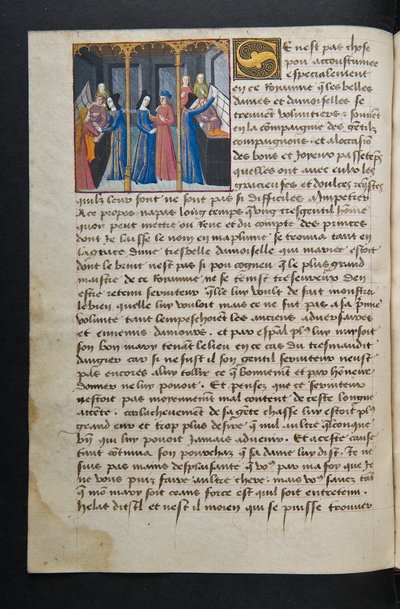 Ce nest pas chose
pou accoustumee
especialement
en ce royaume q̃ les belles
dames et damoiselles se
treuuent voluntiers et souuent
en la compaignie des gentilz
compaignons et a loccasion
des bons et joyeux passetemps
quelles ont auec eulx les
gracieuses et doulces req̃stes
quilz leur font ne sont pas si difficiles a impetrer
A ce propos napas long temps q̃ vng tresgentil hõme
quon peut mectre ou renc et du compte des princes
dont je laisse le nom en ma plume se trouua tant en
la grace dune tresbelle damoiselle qui mariee estoit
dont le bruit nest pas si pou cogneu q̃ le plus grand
maistre de ce royaume ne se tenist treseureux den
estre retenu seruiteur q̃lle luy voult de fait monstrer
le bien quelle luy vouloit mais ce ne fut pas a sa p̃miere
volunte tant lempeschoiẽt les anciens aduersaires
et ennemis damours et par especial pl9 luy nuysoit
son bon mary tenant le lieu en ce cas du tresmaudit
dangier car si ne fust il son gentil seruiteur neust
pas encores a luy tollir ce q̃ bonnemẽt et par hõneur
donner ne luy pouoit . Et pensez que ce seruiteur
nestoit pas moyennemẽt mal content de ceste longue
actente . car lacheuement de sa gente chasse luy estoit pl9
grand eur et trop plus desire q̃ nul aultre q̃lconque
bien qui luy pouoit jamais aduenir . Et a ceste cause
tant cõtinua son pourchaz q̃ sa dame luy dist . Je ne
suis pas mains desplaisante q̃ vo9 par ma foy que je
ne vous puis faire aultre chere . mais vo9 sauez tãt
q̃ mon mary soit ceans force est quil soit entretenu .
Helas dist il et nest il moien qui se puisse trouuer